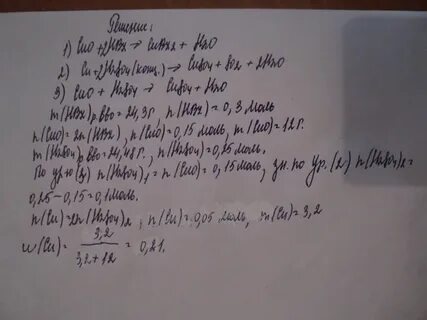 Решение:
1) CuO + 2HBr → CuBr2 + H2O
2) Cu + 2H2SO4 (конц.) → CuSO4 + SO2 + 2H2O
3) CuO + H2SO4 → CuSO4 + H2O
m(HBr) р.вво = 24,3г, n(HBr) = 0,3 моль
n(CuO) = 2n(HBr), n(CuO) = 0,15 моль, m(CuO) = 12г.
m(H2SO4) р.вво = 24,48г., n(H2SO4) = 0,25 моль.
По ур-ю (3) n(H2SO4)1 = n(CuO) = 0,15 моль, зн. по ур. (2) n(H2SO4)2 =
0,25 - 0,15 = 0,1 моль.
n(Cu) = 2n(H2SO4)2, n(Cu) = 0,05 моль, m(Cu) = 3,2
w(Cu) = 3,2 / 3,2 + 12 = 0,21.